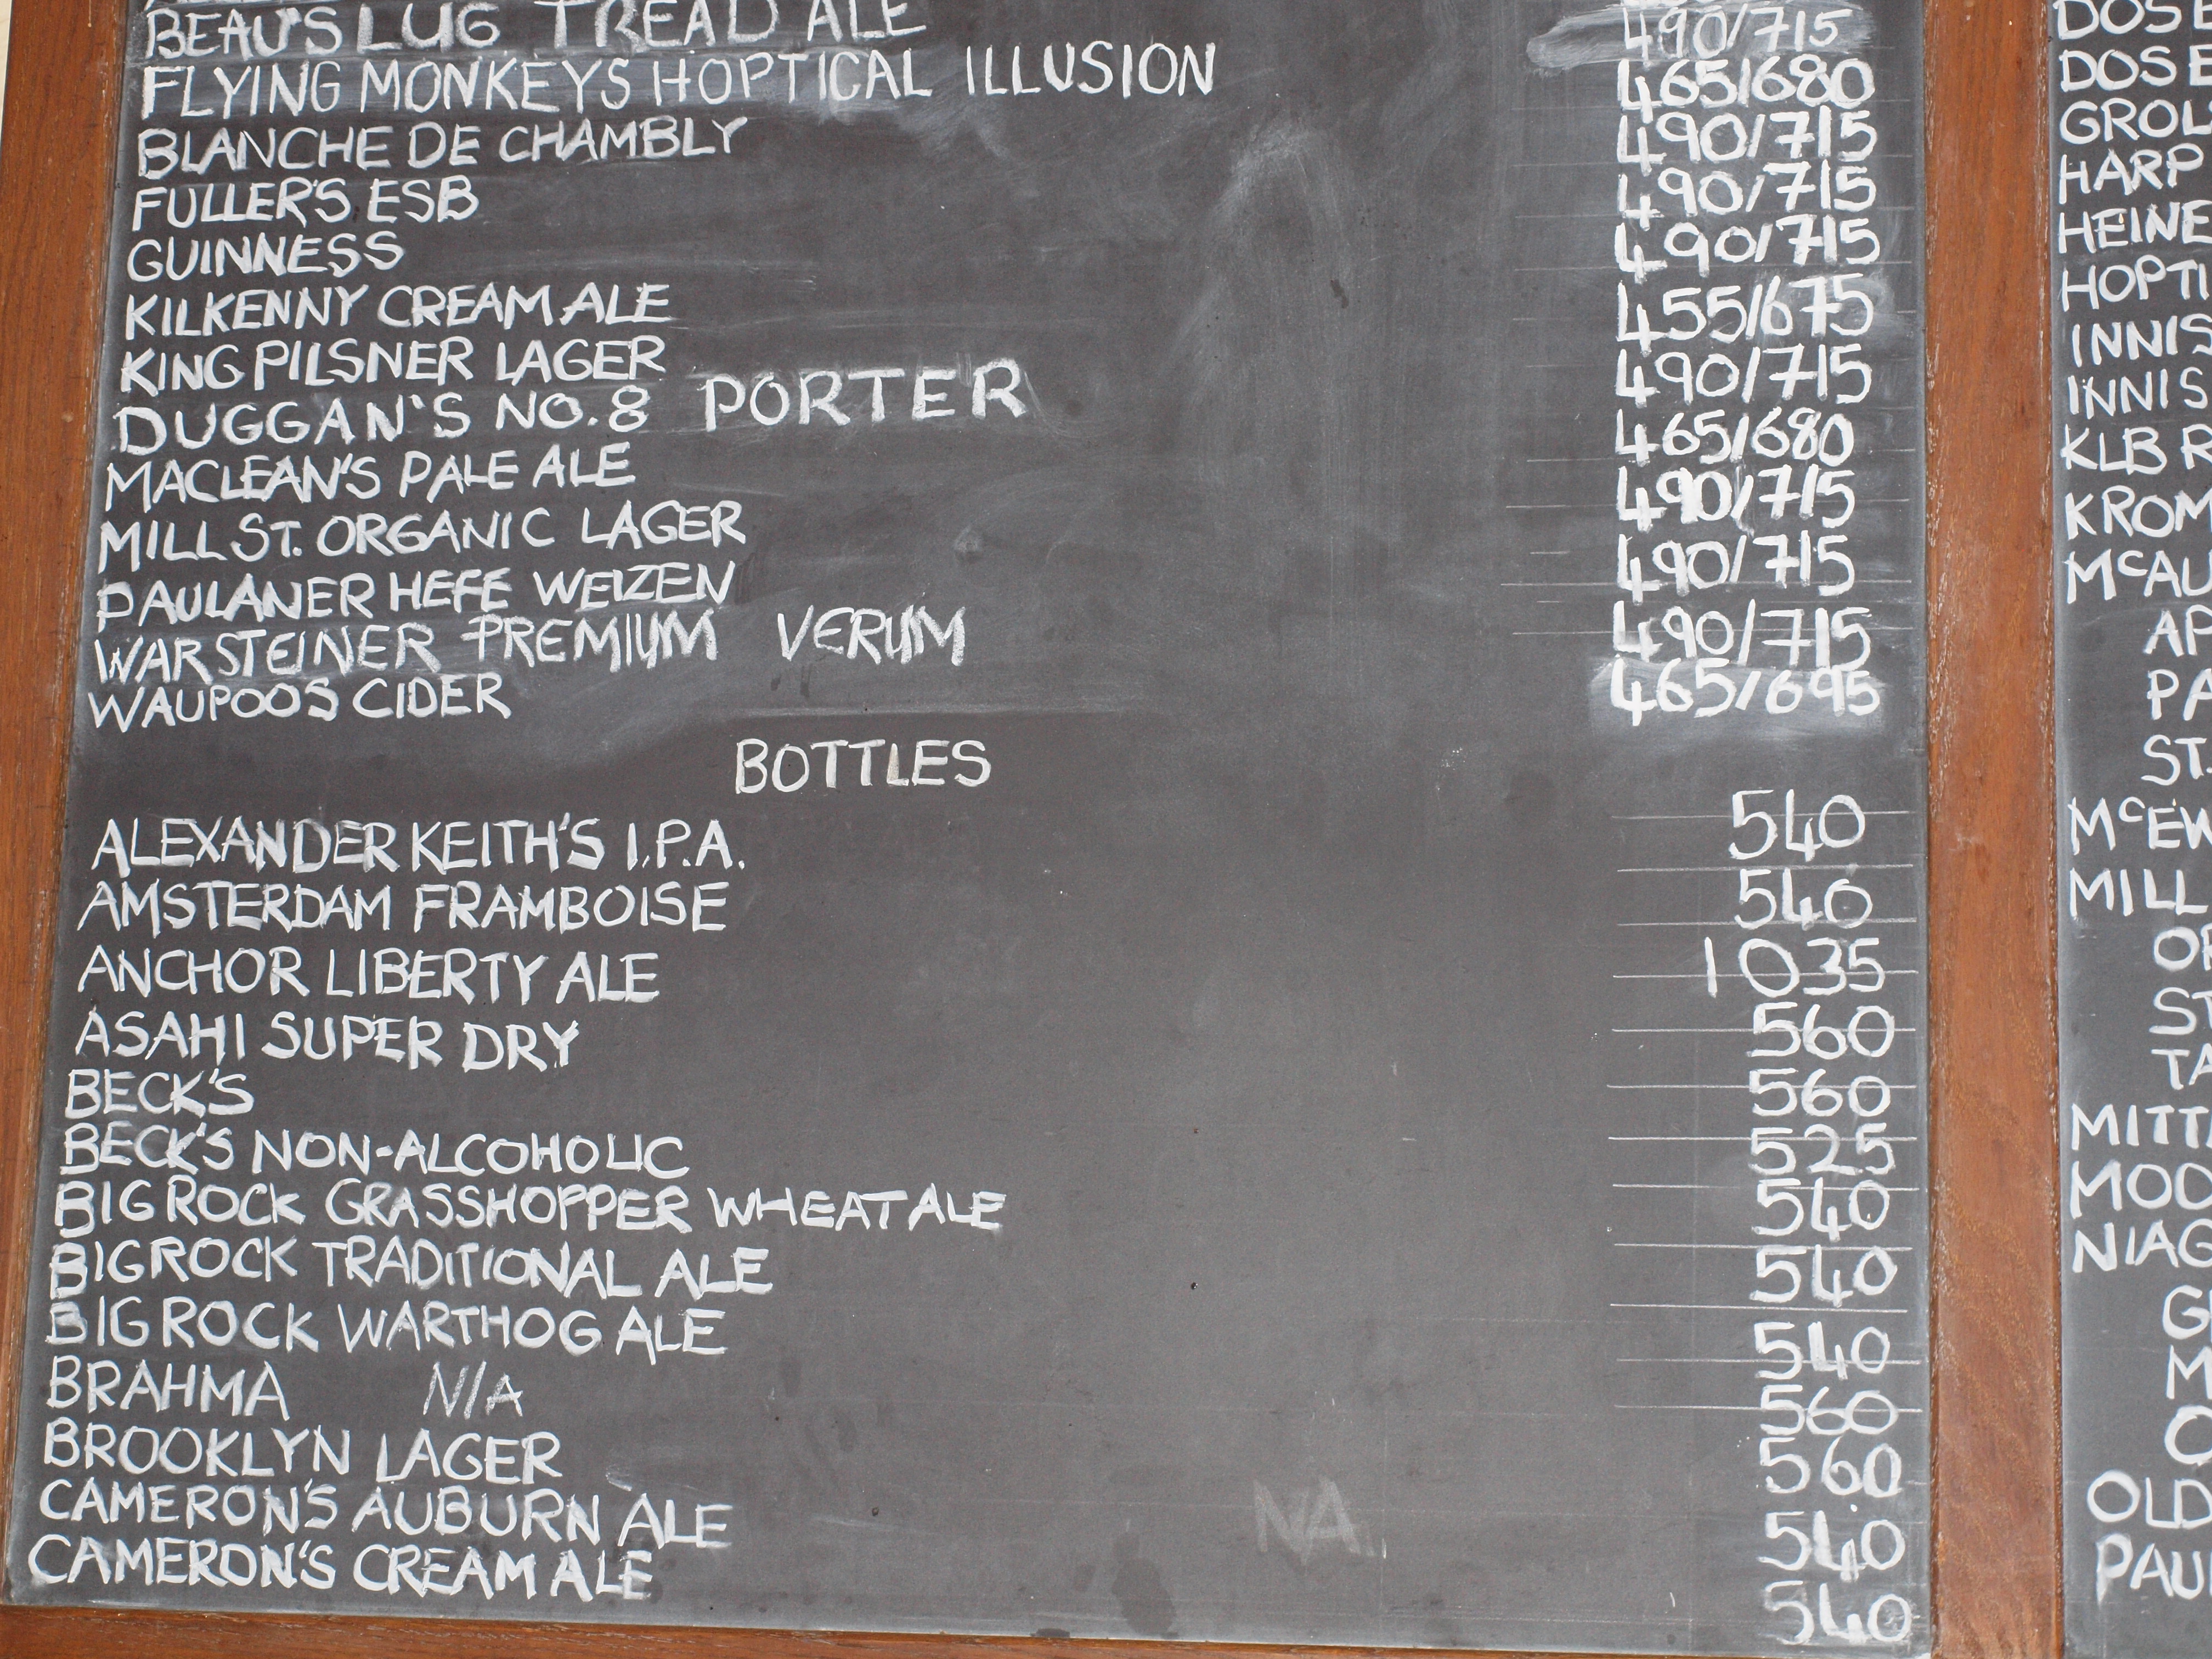 BEAU'S LUG TREAD ALE
FLYING MONKEYS HOPTICAL ILLUSION
BLANCHE DE CHAMBLY
FULLER'S ESB
GUINNESS
KILKENNY CREAM ALE
KING PILSNER LAGER
DUGGAN'S NO.8 PORTER
MACLEAN'S PALE ALE
MILL ST. ORGANIC LAGER
PAULANER HEFE WEIZEN
WARSTEINER PREMIUM VERUM
WAUPOOS CIDER
490/715
465/680
490/715
490/715
490/715
455/675
490/715
465/680
490/715
490/715
490/715
465/695
BOTTLES
ALEXANDER KEITH'S I.P.A. 540
AMSTERDAM FRAMBOISE 540
ANCHOR LIBERTY ALE 1035
ASAHI SUPER DRY 560
BECK'S 560
BECK'S NON-ALCOHOLIC 525
BIG ROCK GRASSHOPPER WHEAT ALE 540
BIG ROCK TRADITIONAL ALE 540
BIG ROCK WARTHOG ALE 540
BRAHMA N/A 560
BROOKLYN LAGER 560
CAMERON'S AUBURN ALE NA 540
CAMERON'S CREAM ALE 540
DOS E
DOS E
GROL
HARP
HEINE
HOPTI
INNIS
INNIS
KLB R
KROM
McAU
AP
PA
ST.
McEW
MILL
OR
ST
TA
MITT
MOO
NIAG
G
M
OLD
PAU